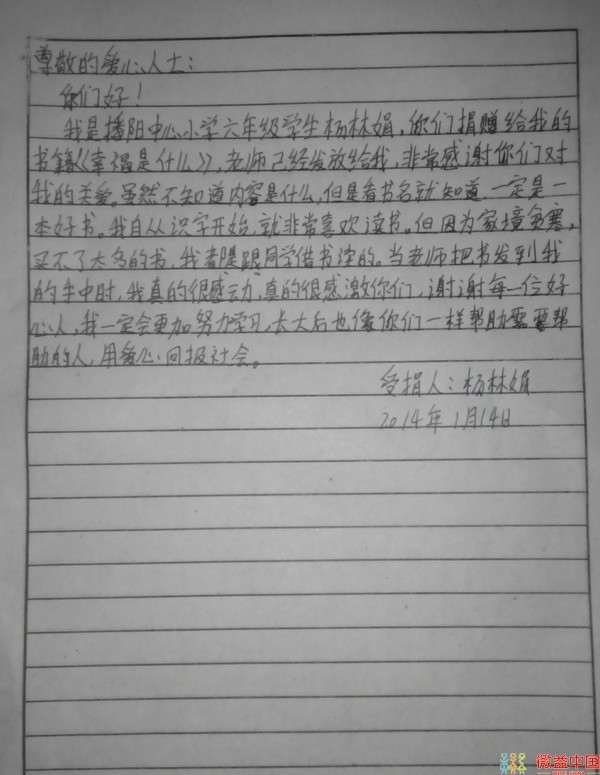 尊敬的爱心人士：
你们好！
我是播阳中心小学六年级学生杨林娟，你们捐赠给我的
书籍《幸福是什么》，老师已经发放给我，非常感谢你们对
我的关爱。虽然不知道内容是什么，但是看书名就知道，一定是一
本好书。我自从识字开始，就非常喜欢读书。但因为家境贫寒，
买不了太多的书，我都是跟同学借书读的。当老师把书发到我
的手中时，我真的很感动，真的很感激你们，谢谢每一位好
心人，我一定会更加努力学习，长大后也像你们一样帮助需要帮
助的人，用爱心回报社会。
受捐人：杨林娟
2014年1月14日
微益中国